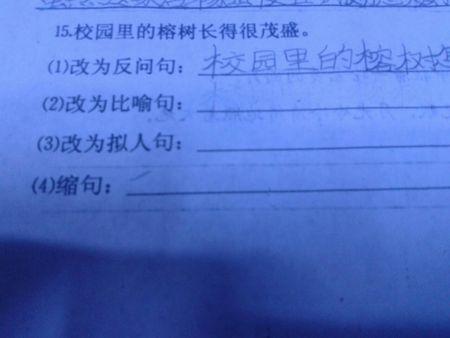 15.校园里的榕树长得很茂盛。
(1)改为反问句：校园里的榕树
(2)改为比喻句：
(3)改为拟人句：
(4)缩句：